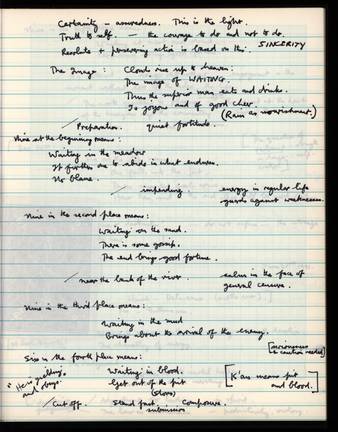 Certainty - assuredness. This is the light.
Truth to self. - the courage to do and not to do.
Resolute + persevering action is based on this. SINCERITY
The Image: Clouds rise up to heaven:
The image of WAITING.
Thus the superior man eats and drinks.
Is joyous and of good cheer.
(Rain as nourishment.)
/ Preparation. quiet fortitude.
Nine at the beginning means:
Waiting in the meadow
It furthers one to abide in what endures.
No blame.
/ impending energy in regular life
guards against weaknesses.
Nine in the second place means:
Waiting on the sand.
There is some gossip.
The end brings good fortune.
/ near the bank of the river. calm in the face of
general censure.
Nine in the third place means:
Waiting in the mud
Brings about the arrival of the enemy.
[seriousness
+ caution needed]
Six in the fourth place means:
" He is yielding Waiting in blood. [K'an means pit
and obeys. Get out of the pit and blood.]
/ Cut off. Stand fast. Composure.
submission